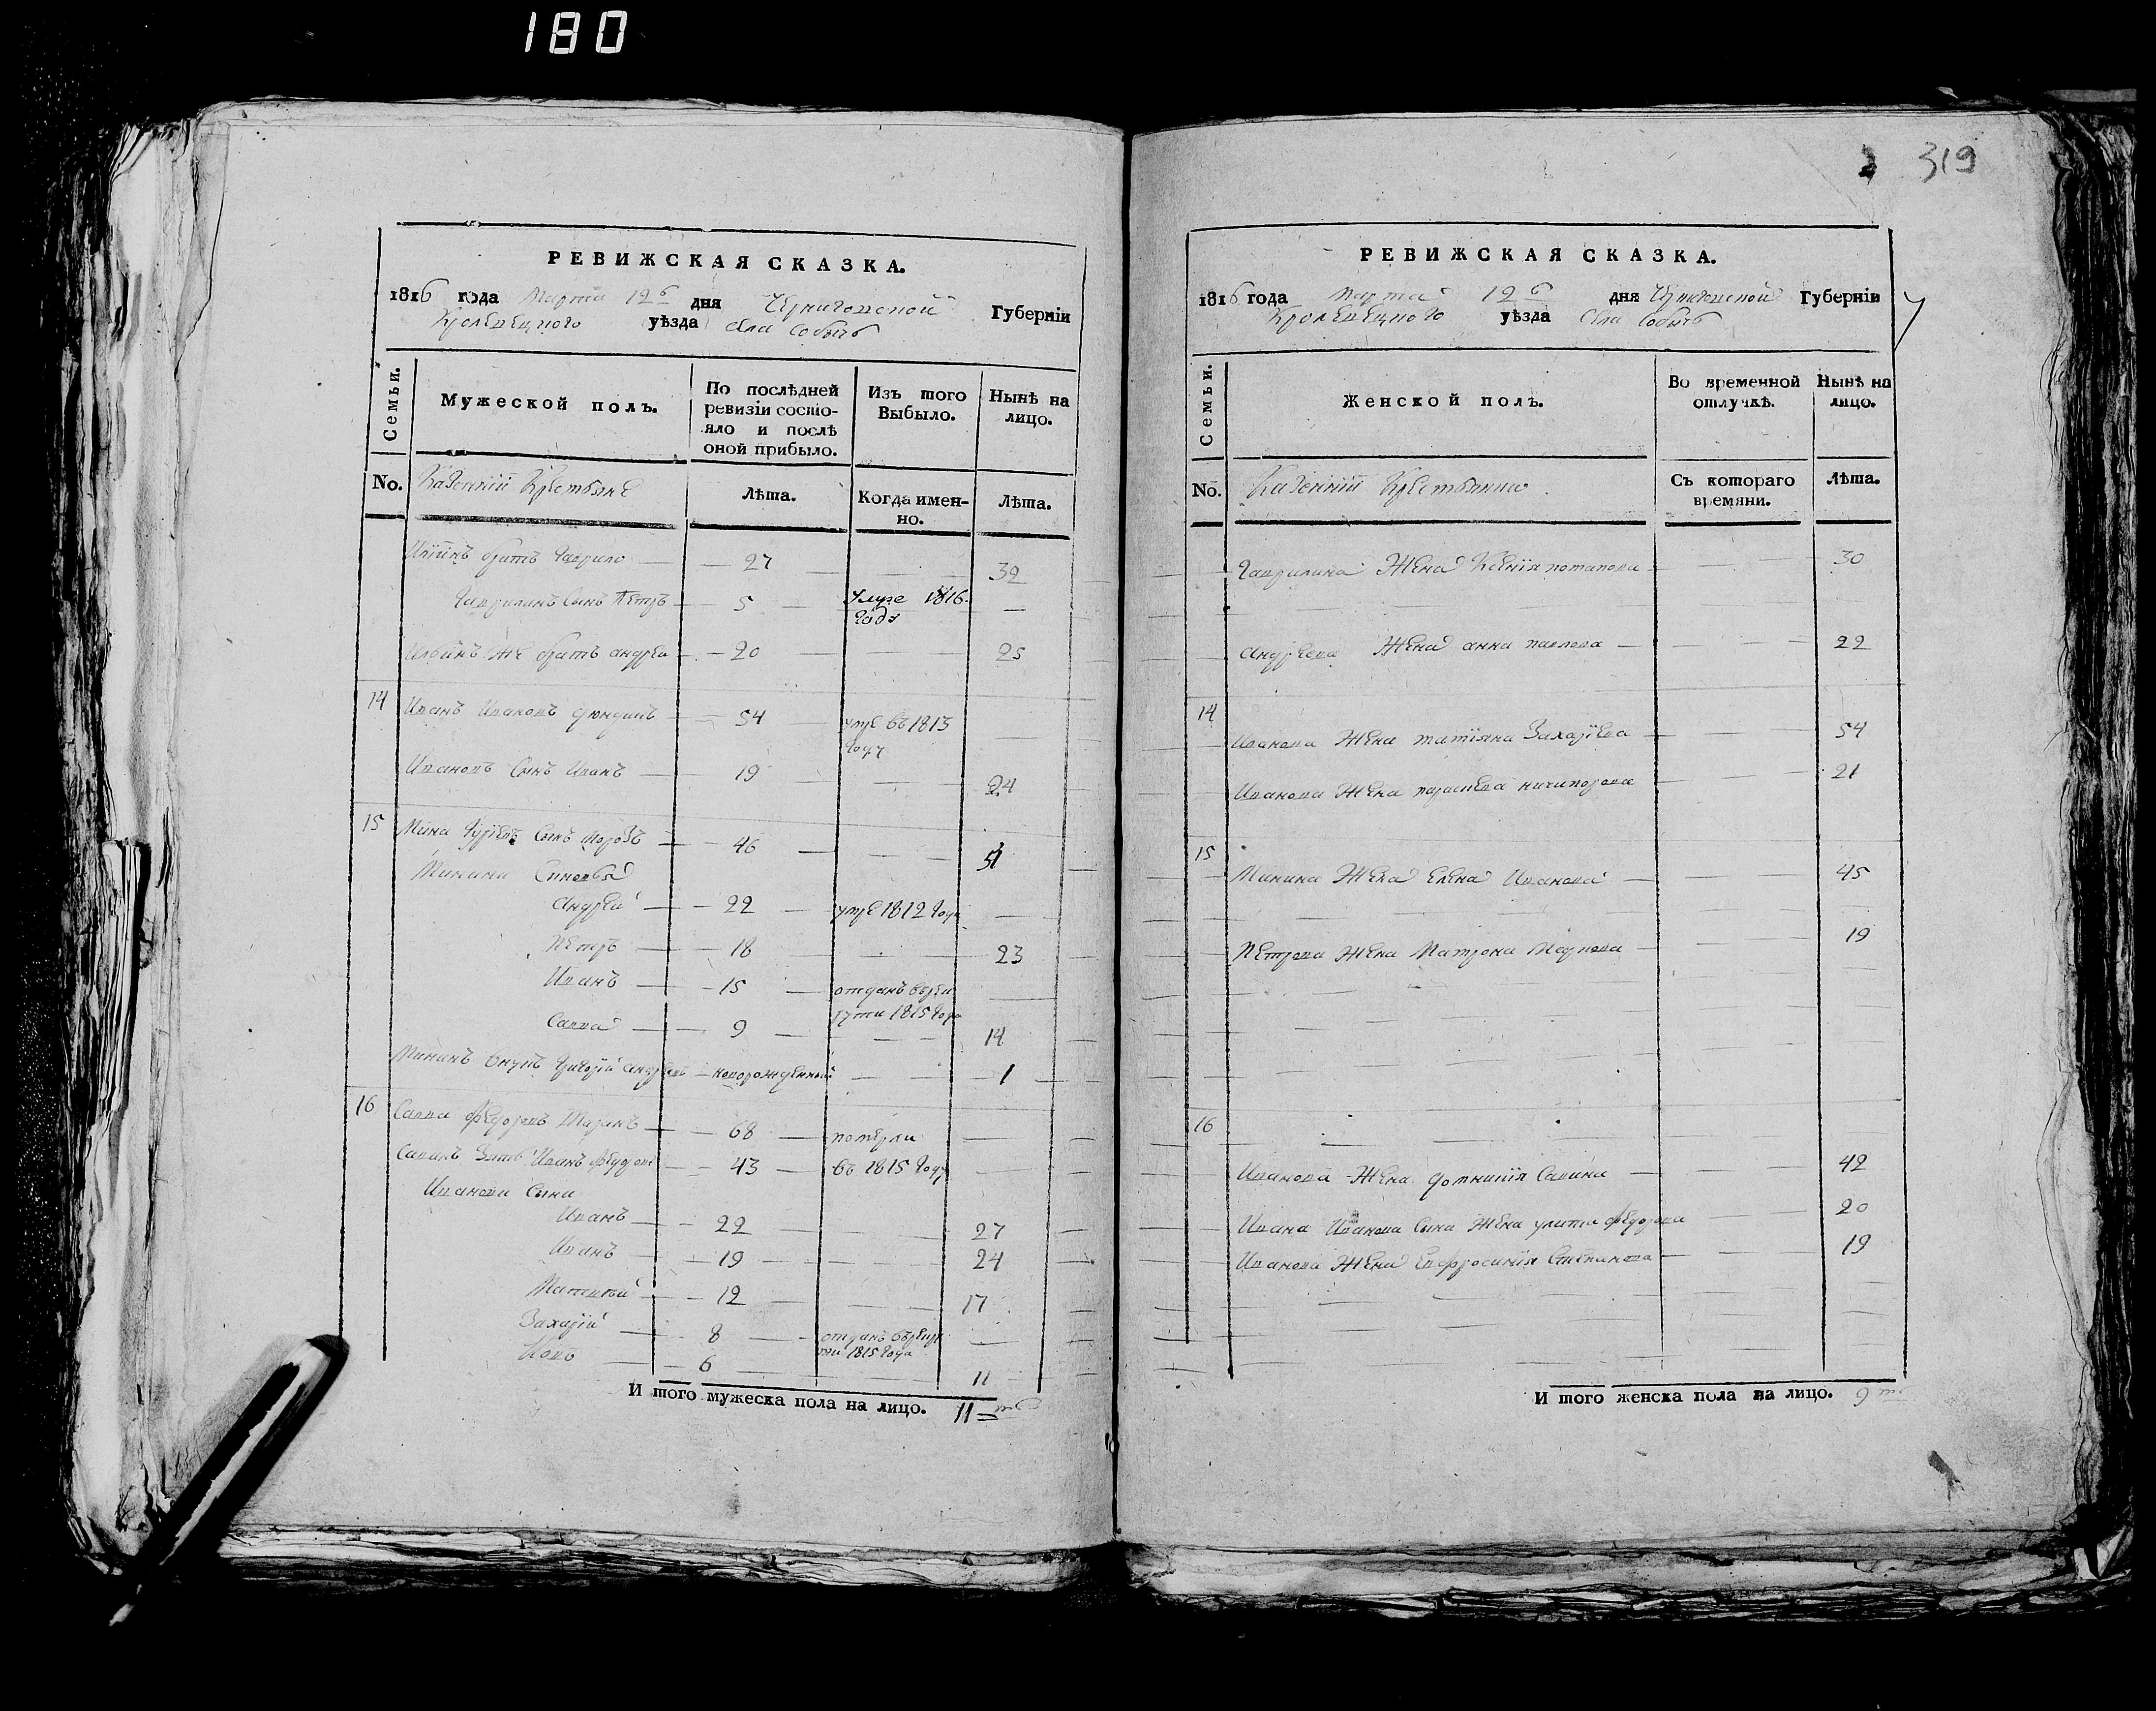 180
РЕВИЖСКАЯ СКАЗКА.
1816 года Марта 12 дня Черниговской Губерніи
Кролевецкого уѣзда села Собычъ
Семьи.
Мужеской полъ.
По послѣдней ревизіи состо-
яло и послѣ
оной прибыло.
Изъ того
Выбыло.
Нынѣ на
лицо.
No. Казенніи Крестьяне
Лѣта.
Когда имен-
но.
Лѣта.
братъ Гаврило 27 32
Гавриловъ Сынъ Петръ 5 1816
года
Ильинъ же братъ андрей 20 25
14 Иванъ Ивановъ 54 умре въ 1813
году
Ивановъ Сынъ Иванъ 19 24
15 Мина Сынъ Морозъ 46 51
Минини Синовья
Андрей 22 умре 1812 года
Петръ 18 23
Иванъ 15 отданъ въ рекрути 1815 года
Савва 9 14
Мининъ внукъ Григорій андреевъ новорожденный 1
16 Савва Федоровъ 68 померли
Савинъ зять Иванъ Федоровъ 43 въ 1815 году
Иванови Сыни
Иванъ 22 27
Иванъ 19 24
Матвей 12 17
Захарій 8 отданъ въ рекру
ти 1815 года
Іовъ 6 11
И того мужеска пола на лицо. 11
319
РЕВИЖСКАЯ СКАЗКА.
1816 года Марта 12 дня Черниговской Губерніи
Кролевецкого уѣзда села Собычъ
Семьи.
Женской полъ.
Во временной
отлучкѣ.
Нынѣ на
лицо.
No. Казенніи Крестьянки
Съ котораго
времяни.
Лѣта.
Гаврилина Жена Ксенія потапова 30
Андреева Жена анна павлова 22
14
Иванова Жена татіяна Захаріева 54
Иванова Жена параскева ничипорова 21
15
Минина Жена Елена Иванова 45
Петрова Жена Матрона Маркова 19
16
Иванова Жена домникія Савина 42
Ивана Иванова Сина Жена улита Федорова 20
Иванова Жена Евфросинія Степанова 19
И того женска пола на лицо. 9